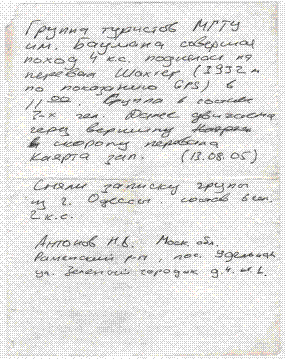 Группа туристов МГТУ
им. Баумана совершая
поход 4 к.с. поднялась на
перевал Шахтер (3932 м
по показанию GPS) в
11⁰⁰. Группа в составе
3-х чел. Далее движемся
через вершину
в сторону перевала
Каярта зап. (13.08.05)
Сняли записку группы
из г. Одессы. состав 6 чел.
2 к.с.
Антонов М.В. Моск. обл.
Раменский р-н, пос. Удельная
ул. Зеленый городок д.4. кв.